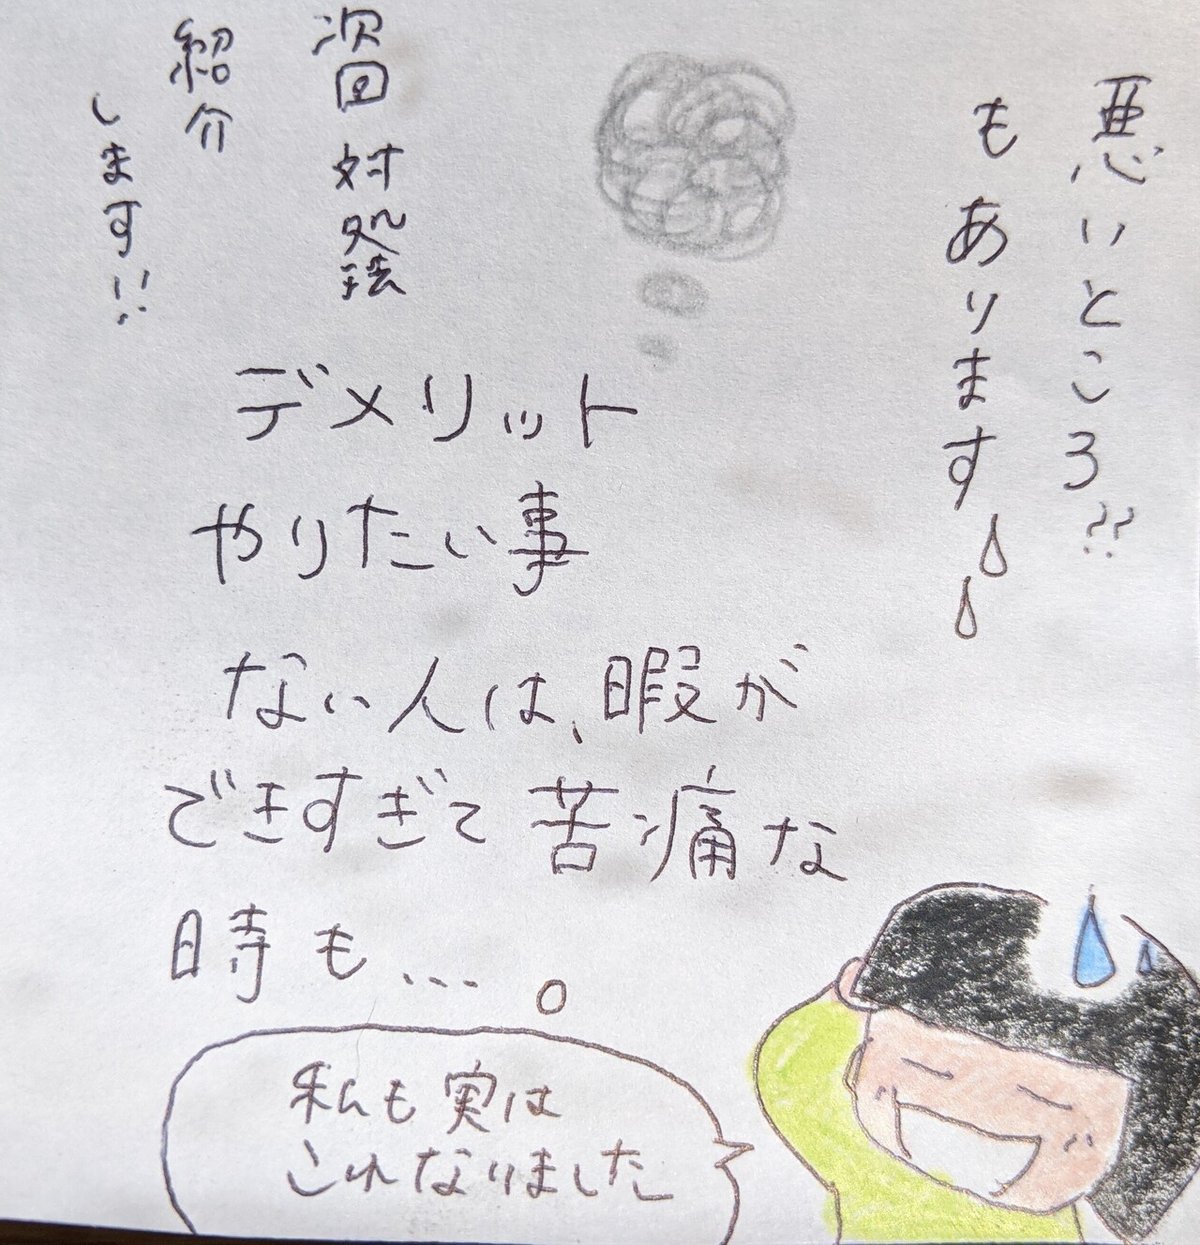 悪いところ??
もあります
デメリット
やりたい事
ない人は、暇が
できすぎて苦痛な
時も…。
私も実は
これなりました
次回対処法
紹介
します!!